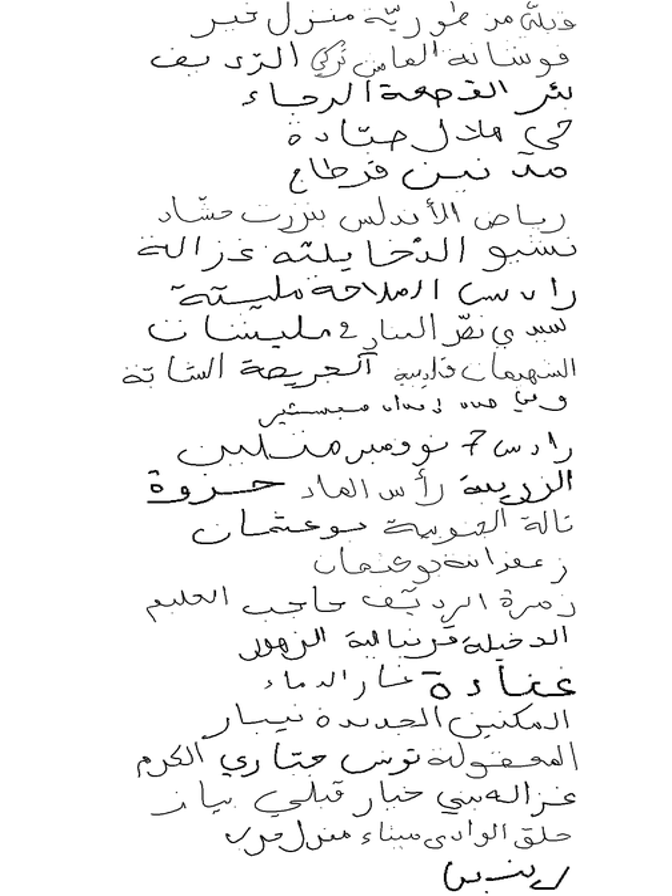 قبلّي مر طوريّة منزل خير
فوشانة الماس تركي الرديف
بئر القصعة الرجاء
حي هلال صيّادة
مدنين قرطاج
رياض الأندلس بنزرت حشّاد
نشيو الدّخايليّة غزالة
رادس الملاحة مليتة
سيدي نصر المنار 2 مليشات
الشهيمات قليبية العريصة الشابة
منستير
رادس 7 نوفمبر متلين
الزريبة رأس الماء حزوة
تالة الجنوبية بوعثمان
زعفرانة بوعثمان
زمرة الرديّف حاجب
الدخيلة قرنبالية الزهور
غنّاءة غار الدماء
المكنين الجديدة نيبار
المعقولة تونس جبّاري الكرم
غزالة بني خيار قبلي بياز
حلق الوادي ميناء منزل حرب